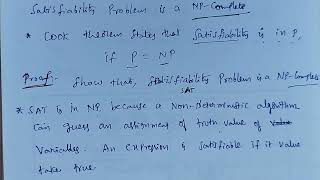 Satisfiability Problem is a NP-Complete
* Cook theorem states that Satisfiability is in P,
if P = NP
Proof:- Show that, Satisfiability Problem is a NP-Complete
SAT
* SAT is in NP because a Non-deterministic algorithm
can guess an assignment of truth value of
Variables. An expression is satisfiable if it value
take true.